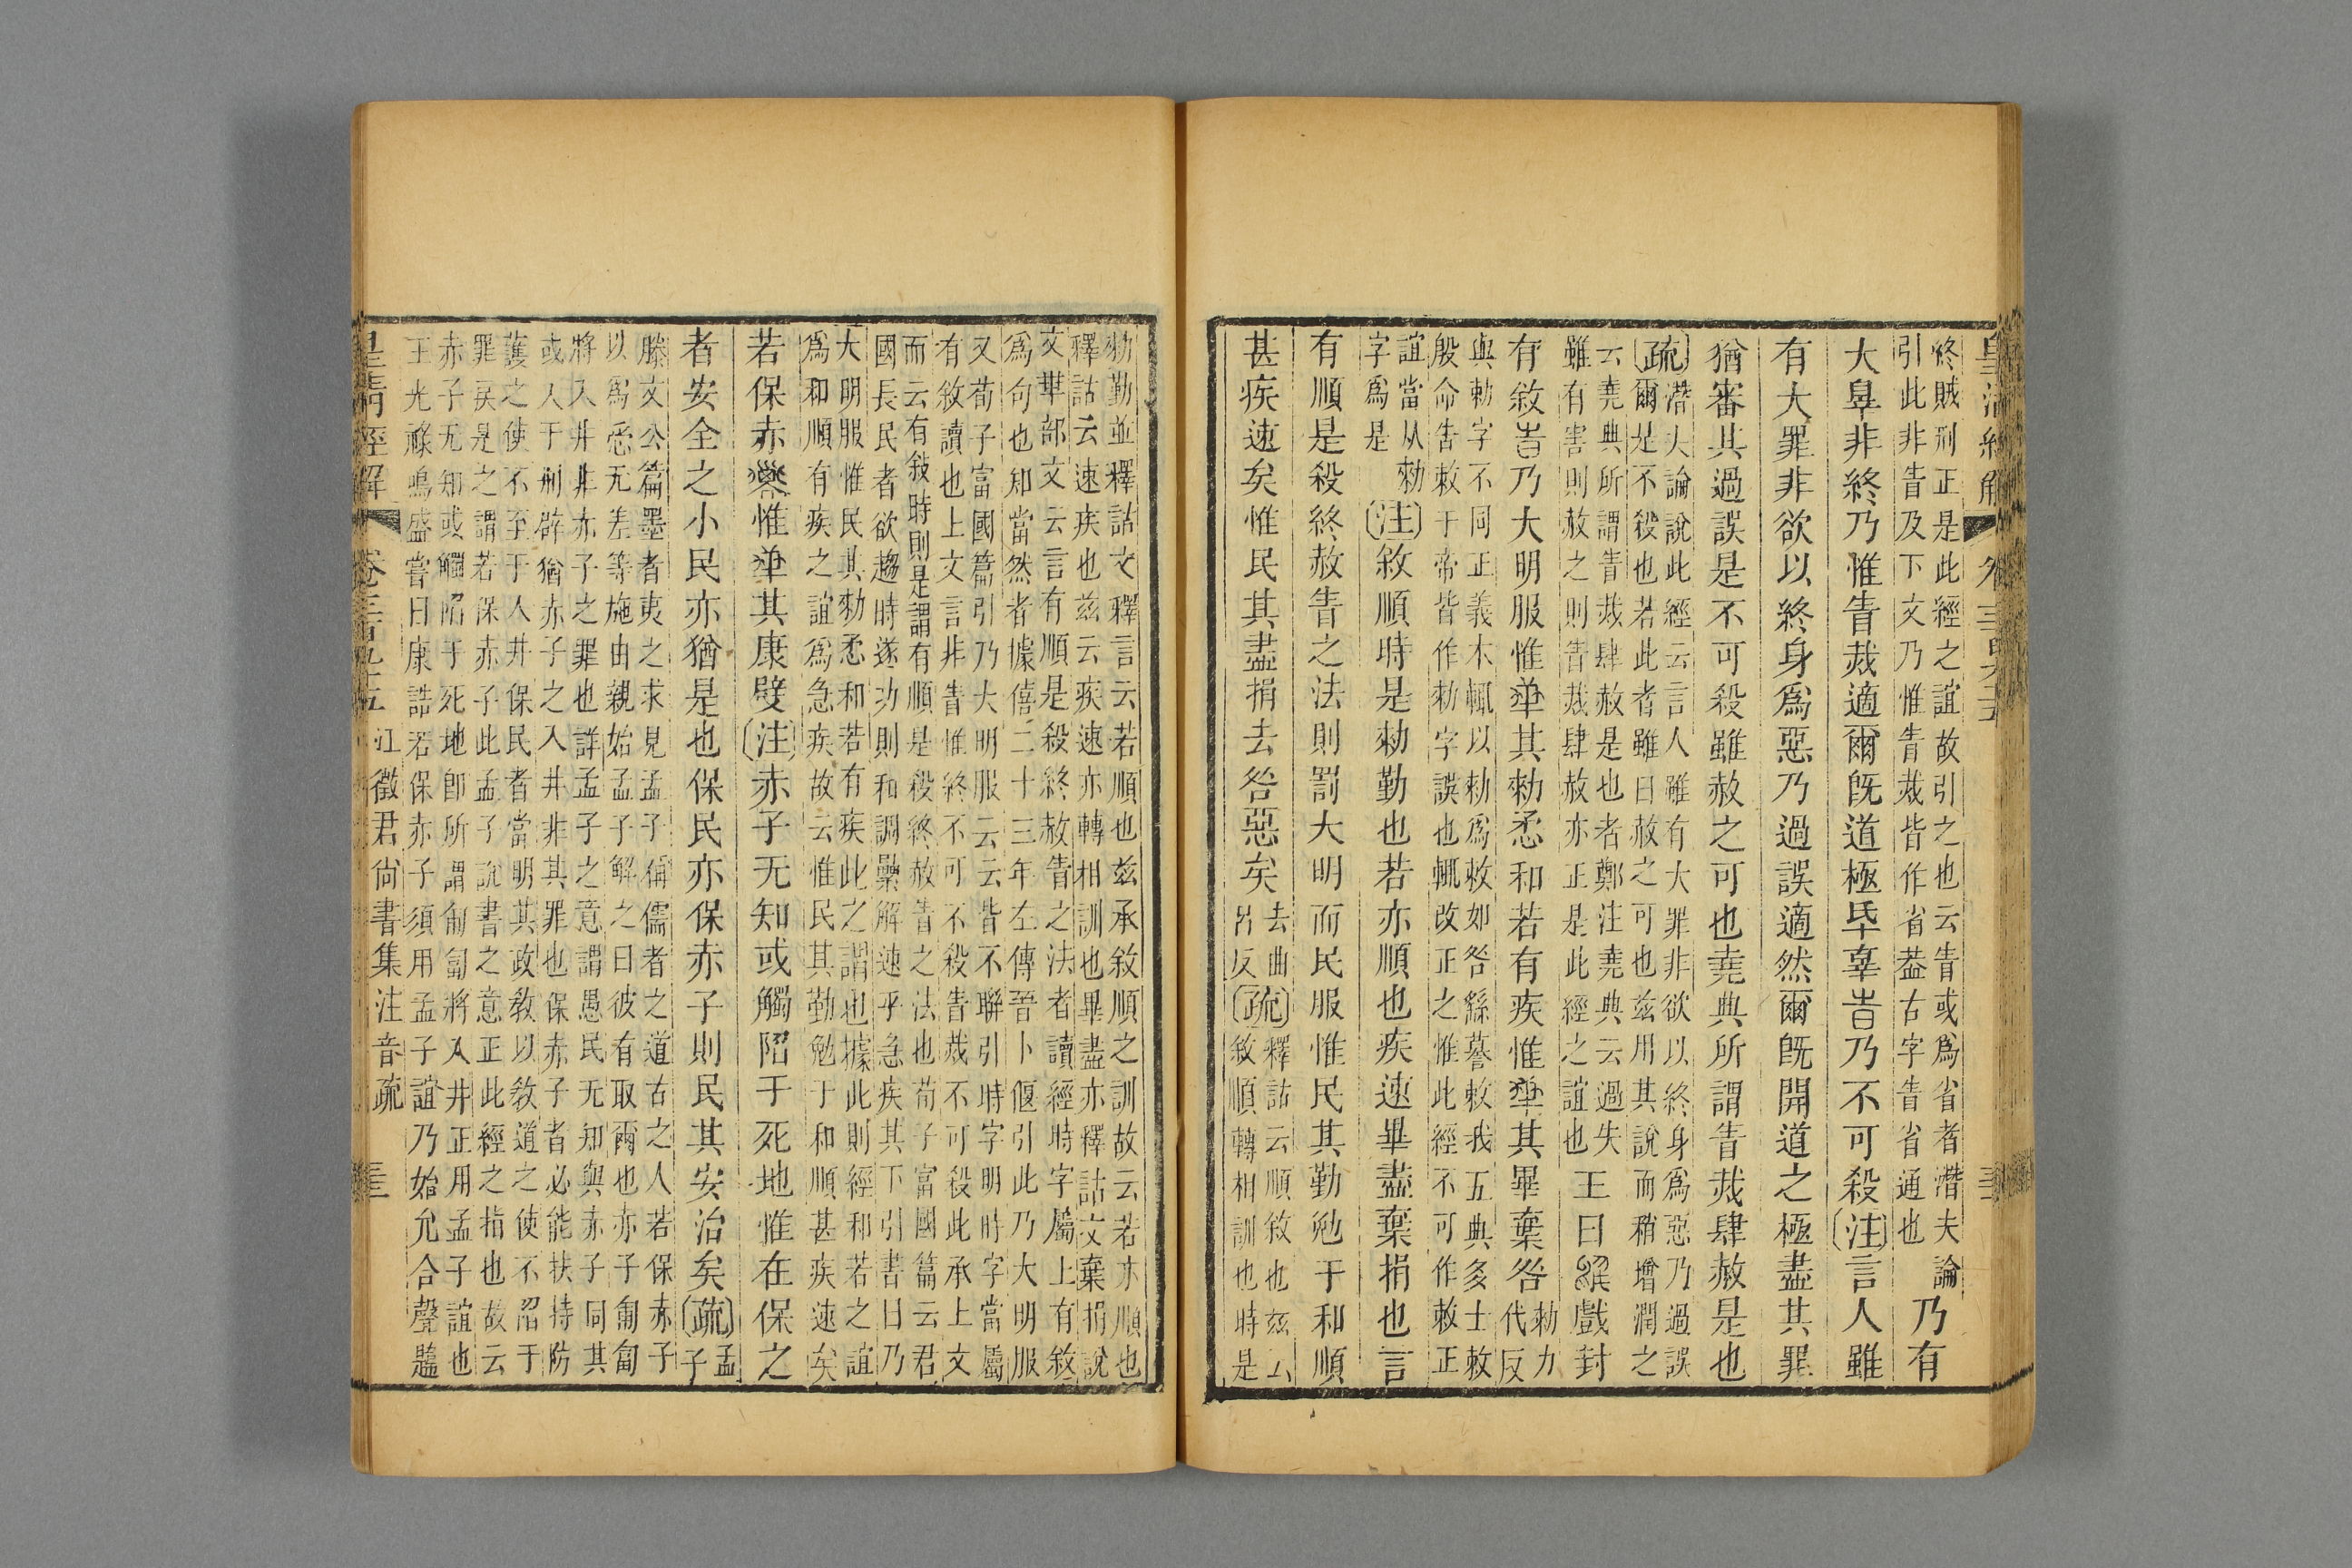 皇清經解
終賊刑正是此經之誼故引之也云眚或爲省者潛夫論
引此非眚及下文乃惟眚烖皆作省葢古字眚省通也
乃有
大辠非終乃惟眚烖適爾旣道極氒辜旹乃不可殺〔注〕言人雖
有大罪非欲以終身爲惡乃過誤適然爾旣開道之極盡其罪
猶審其過誤是不可殺雖赦之可也堯典所謂眚烖肆赦是也
〔疏〕潛夫論說此經云言人雖有大罪非欲以終身爲惡乃過誤
爾是不殺也若此者雖曰赦之可也兹用其說而稍增潤之
云堯典所謂眚烖肆赦是也者鄭注堯典云過失
雖有害則赦之則眚烖肆赦亦正是此經之誼也
王曰戲封
有敘旹乃大明服惟民其勑懋和若有疾惟民其畢棄咎
勑力
代反
與勑字不同正義本輒以勑爲敕如咎繇謩敕我五典多士敕
殷命告敕于帝皆作勑字誤也輒改正之惟此經不可作敕正
誼當从勑
字爲是
〔注〕敘順時是勑勤也若亦順也疾速畢盡棄捐也言
有順是殺終赦眚之法則罰大明而民服惟民其勤勉于和順
甚疾速矣惟民其盡捐去咎惡矣
去曲
呂反
〔疏〕釋詁云順敘也兹云
敘順轉相訓也時是
勑勤並釋詁文釋言云若順也兹承敘順之訓故云若亦順也
釋詁云速疾也兹云疾速亦轉相訓也畢盡亦釋詁文棄捐說
文𠦒部文云言有順是殺終赦眚之法者讀經時字屬上有敘
爲句也知當然者據僖二十三年左傳晉卜偃引此乃大明服
又荀子富國篇引乃大明服云云皆不聯引時字明時字當屬
有敘讀也上文言非眚惟終不可不殺眚烖不可殺此承上文
而云有敘時則是謂有順是殺終赦眚之法也荀子富國篇云君
國長民者欲趨時遂功則和調纍解速乎急疾其下引書曰乃
大明服惟民其勑懋和若有疾此之謂也據此則經和若之誼
爲和順有疾之誼爲急疾故云惟民其勤勉于和順甚疾速矣
若保赤子惟民其康〔注〕赤子无知或觸陷于死地惟在保之
者安全之小民亦猶是也保民亦保赤子則民其安治矣〔疏〕孟
子
滕文公篇墨者夷之求見孟子偁儒者之道古之人若保赤子
以爲㤅无差等施由親始孟子解之曰彼有取爾也赤子匍匐
將入井非赤子之罪也詳孟子之意謂愚民无知與赤子同其
或入于刑辟猶赤子之入井非其罪也保赤子者必能扶持防
護之使不至于入井保民者當明其政敎以敎道之使不陷于
罪戾是之謂若保赤子此孟子說書之意正此經之指也故云
赤子无知或觸陷于死地卽所謂匍匐將入井正用孟子誼也
王光祿鳴盛嘗曰康誥若保赤子須用孟子誼乃始允合聲䪡
皇清經解 卷三百九十五 江徵君尙書集注音疏